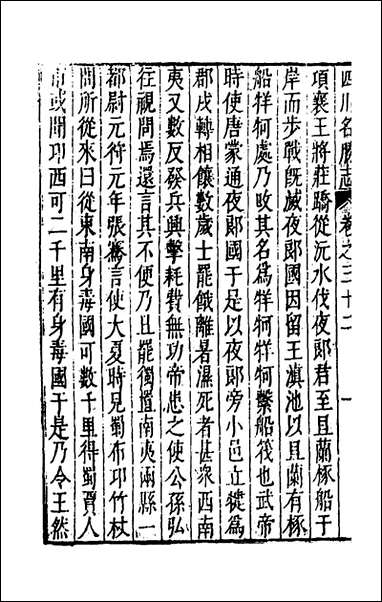 四川名勝志　卷之三十二　一
項襄王將莊蹻從沅水伐夜郎君至且蘭椓船于
岸而步戰旣滅夜郎國因留王滇池以且蘭有椓
船牂牁處乃攺其名爲牂牁牂牁繫船筏也武帝
時使唐蒙通夜郎國于是以夜郎旁小邑立犍爲
郡戍轉相饟數歲士罷餓離暑濕死者甚衆西南
夷又數反發兵興擊耗費無功帝患之使公孫弘
往視問焉還言其不便乃且罷獨置南夷兩縣一
都尉元符元年張騫言使大夏時見蜀布卭竹杖
問所從來曰從東南身毒國可數千里得蜀賈人
市或聞卭西可二千里有身毒國于是乃令王然